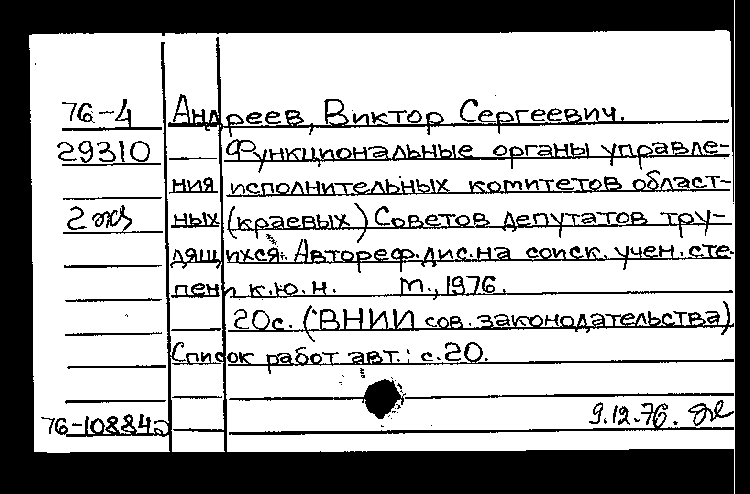 76-4 Андреев, Виктор Сергеевич.
29310 Функциональные органы управле-
ния исполнительных комитетов област-
2 экз ных (краевых) Советов депутатов тру-
дящихся. Автореф. дис. на соиск. учен. сте-
пени к.ю.н. М., 1976.
20с. (ВНИИ сов. законодательства)
Список работ авт.: с.20.
9.12.76.
76-10884